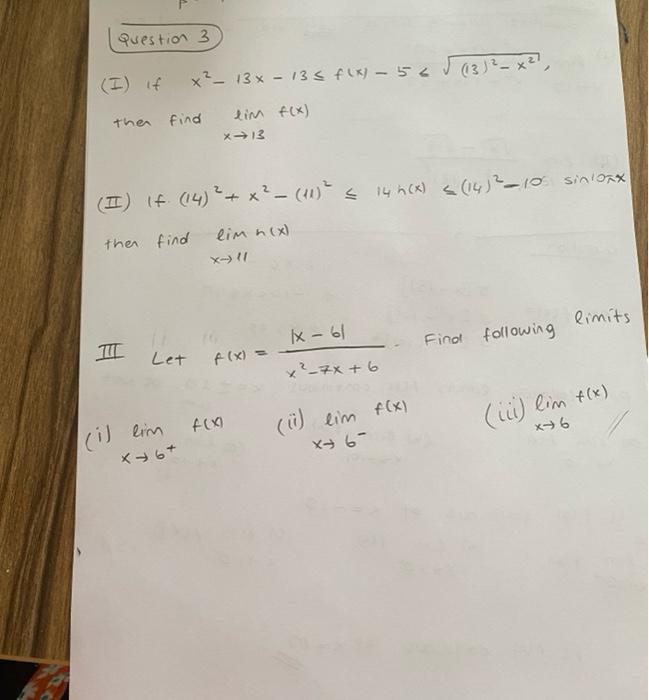 Question 3
(I) if x² - 13x - 13 ≤ f(x) - 5 ≤ √(13)² - x²,
then find lim f(x)
x → 13
(II) If (14)² + x² - (11)² ≤ 14 h(x) ≤ (14)² - 10 sin10πx
then find lim h(x)
x → 11
III Let f(x) = |x - 6| / x² - 7x + 6 . Find following limits
(i) lim f(x) (ii) lim f(x) (iii) lim f(x)
x → 6⁺ x → 6⁻ x → 6